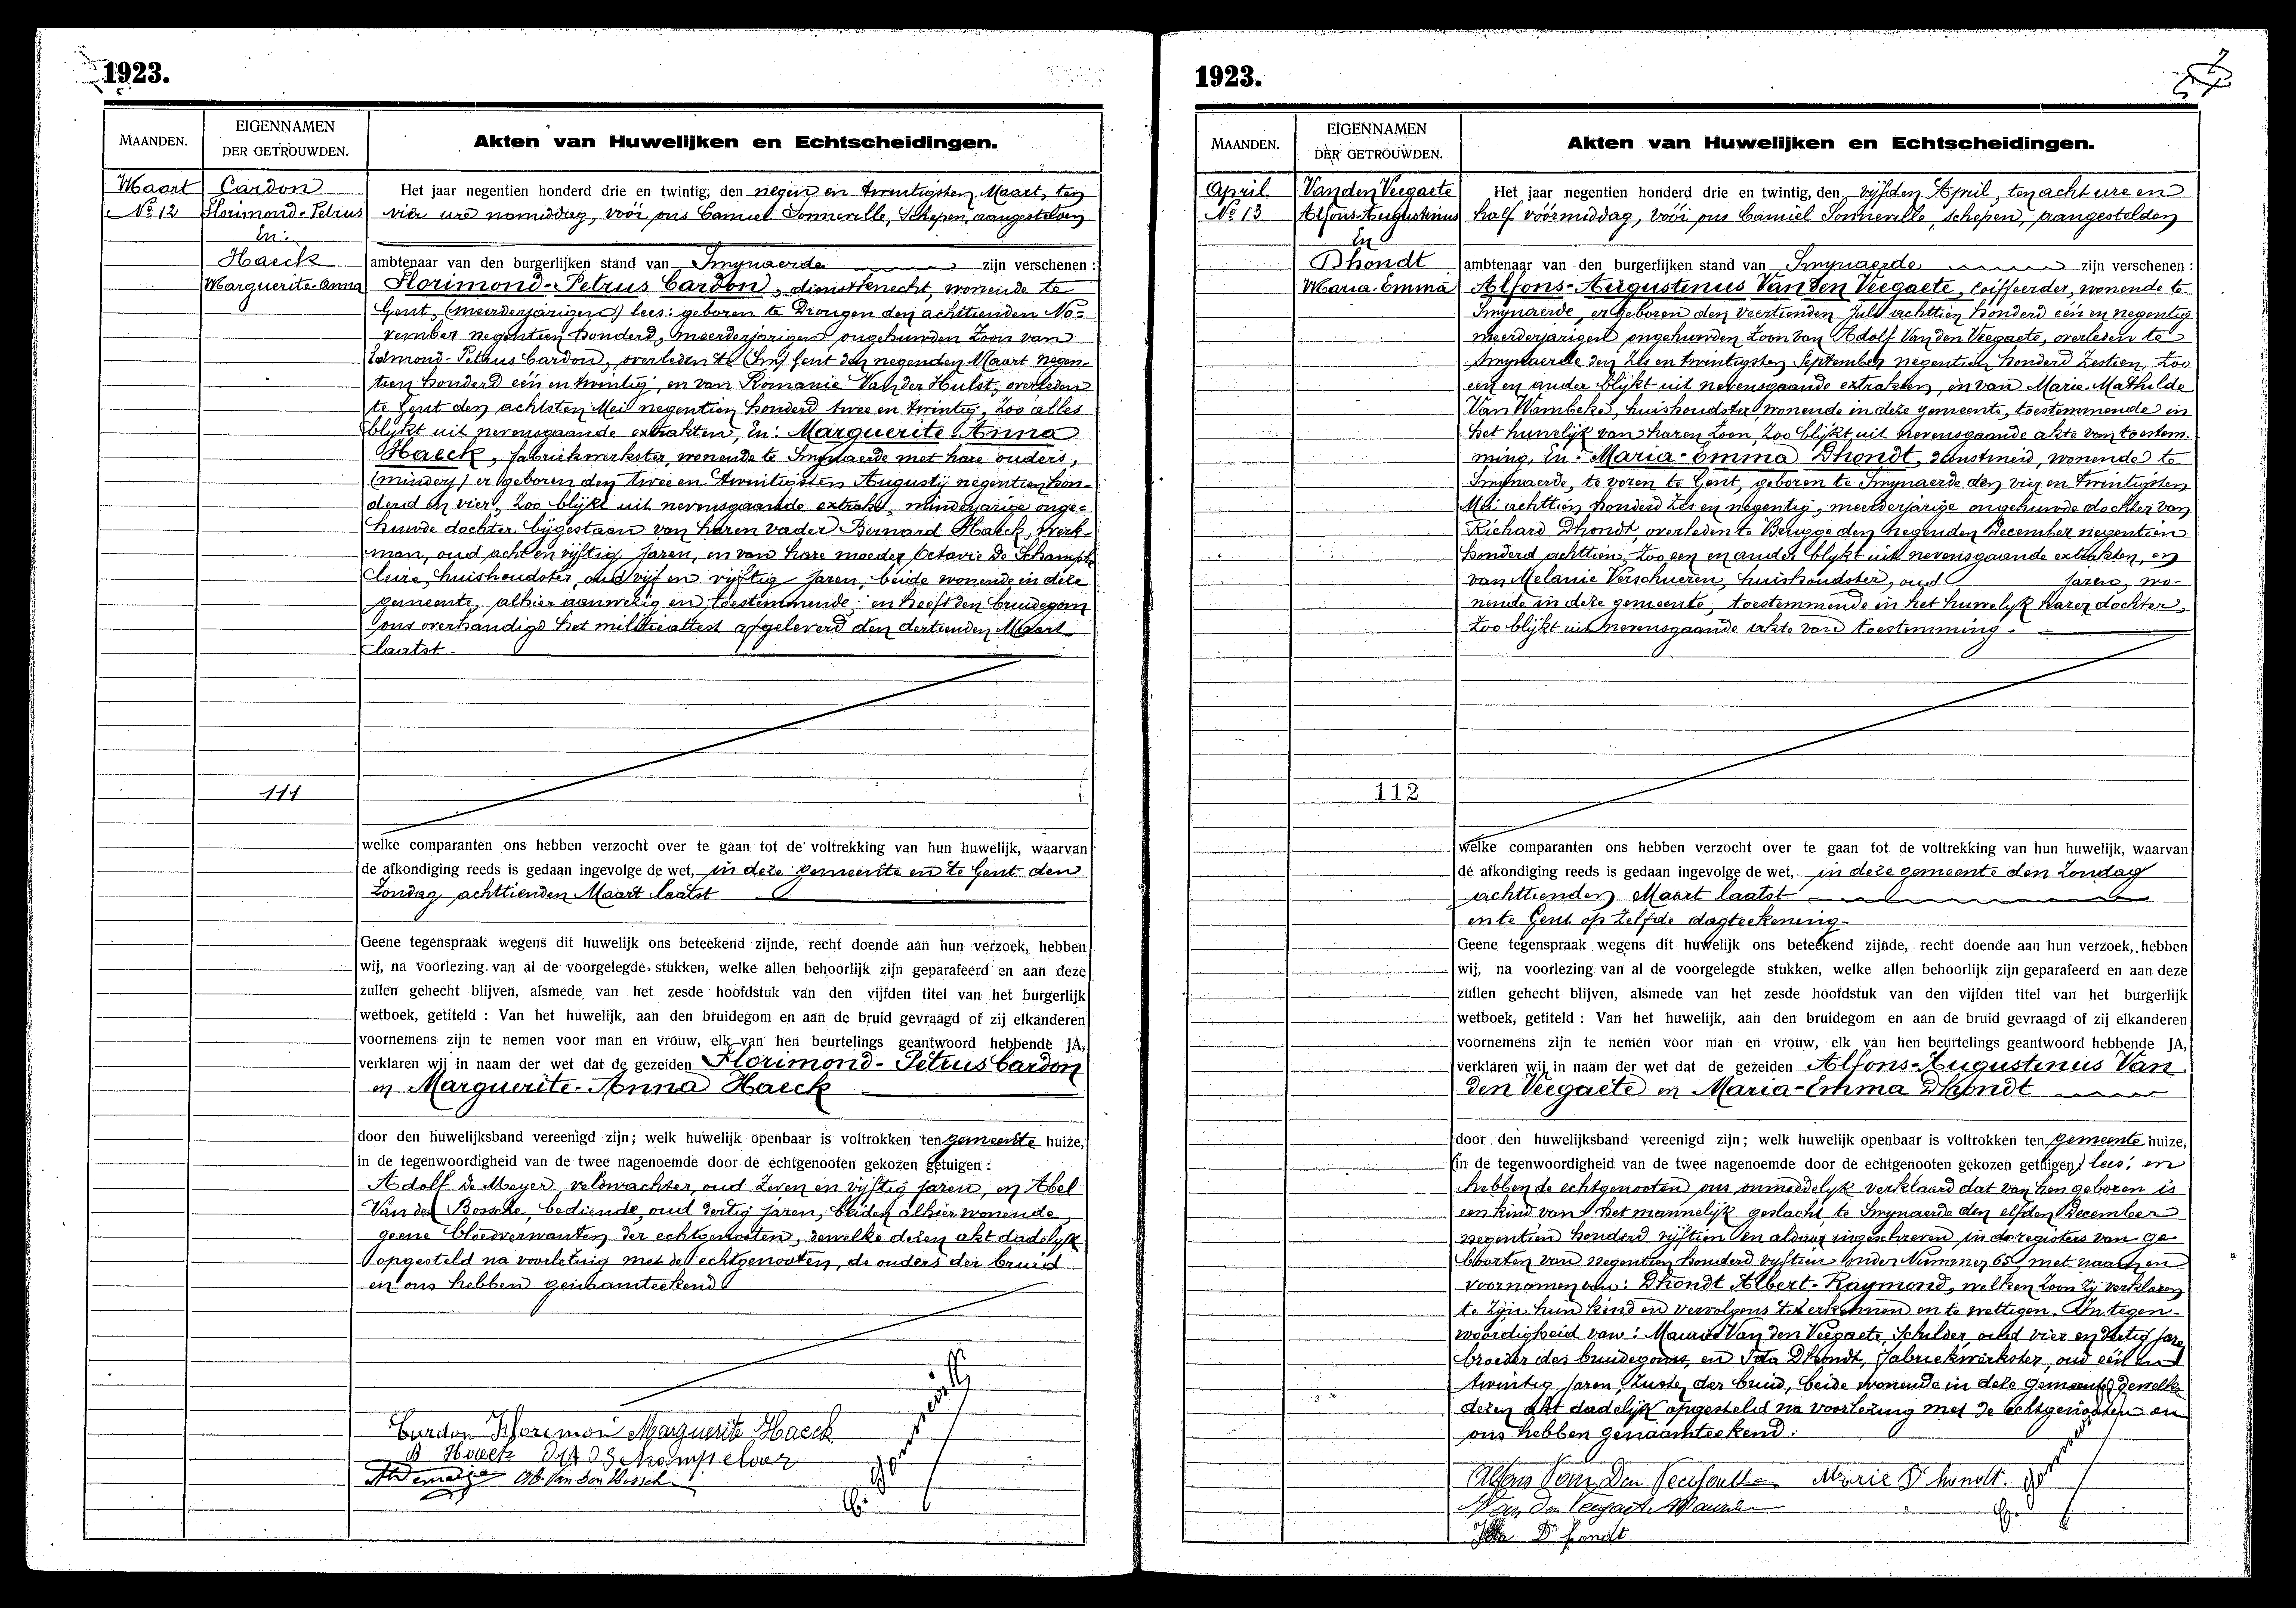 1923.
MAANDEN.
EIGENNAMEN
DER GETROUWDEN.
Akten van Huwelijken en Echtscheidingen.
Maart
No 12
Cardon
Florimond-Petrus
En:
Haeck
Marguerite-Anna
111
Het jaar negentien honderd drie en twintig, den negen en twintigsten Maart, ten
vier ure namiddag, vóór ons Camiel Sonneville, Schepen, aangestelden
ambtenaar van den burgerlijken stand van Smynaerde zijn verschenen :
Florimond-Petrus Cardon, dienstknecht, wonende te
Gent, (meerderjarigen) lees: geboren te Drongen den achttienden No-
vember negentien honderd, meerderjarigen ongehuwden Zoon van
Edmond-Petrus Cardon, overleden te (Smy) Gent den negenden Maart negen-
tien honderd één en twintig, en van Romanie Van der Hulst, overleden
te Gent den achtsten Mei negentien honderd twee en twintig, zoo alles
blijkt uit nevensgaande extrakten, En: Marguerite-Anna
Haeck, fabriekwerkster, wonende te Smynaerde met hare ouders,
(mindery) er geboren den twee en twintigsten Augustij negentien hon-
derd en vier, zoo blijkt uit nevensgaande extrakt, minderjarige onge-
huwde dochter bijgestaan van haren vader Bernard Haeck, werk-
man, oud acht en vijftig jaren, en van hare moeder Octavie De Schamphe
leire, huishoudster, oud vijf en vijftig jaren, beide wonende in deze
gemeente, alhier aanwezig en toestemmende; en heeft den bruidegom
ons overhandigd het militieattest afgeleverd den dertienden Maart
laatst.
welke comparanten ons hebben verzocht over te gaan tot de voltrekking van hun huwelijk, waarvan
de afkondiging reeds is gedaan ingevolge de wet, in deze gemeente en te Gent den
Zondag achttienden Maart laatst
Geene tegenspraak wegens dit huwelijk ons beteekend zijnde, recht doende aan hun verzoek, hebben
wij, na voorlezing van al de voorgelegde stukken, welke allen behoorlijk zijn geparafeerd en aan deze
zullen gehecht blijven, alsmede van het zesde hoofdstuk van den vijfden titel van het burgerlijk
wetboek, getiteld : Van het huwelijk, aan den bruidegom en aan de bruid gevraagd of zij elkanderen
voornemens zijn te nemen voor man en vrouw, elk van hen beurtelings geantwoord hebbende JA,
verklaren wij in naam der wet dat de gezeiden Florimond-Petrus Cardon
en Marguerite-Anna Haeck
door den huwelijksband vereenigd zijn; welk huwelijk openbaar is voltrokken ten gemeente huize,
in de tegenwoordigheid van de twee nagenoemde door de echtgenooten gekozen getuigen :
Adolf De Meyer, veldwachter, oud zeven en vijftig jaren, en Abel
Van den Bossche, bediende, oud dertig jaren, beiden alhier wonende,
geene bloedverwanten der echtgenooten, dewelke dezen akt dadelijk
opgesteld na voorlezing met de echtgenooten, de ouders der bruid
en ons hebben genaamteekend
Cardon Florimon Marguerite Haeck
B Haeck
Ab. Van den Bossche
1923.
MAANDEN.
EIGENNAMEN
DER GETROUWDEN.
Akten van Huwelijken en Echtscheidingen.
April
No 13
Van den Veegaete
Alfons-Augustinus
En
Dhondt
Maria-Emma
112
Het jaar negentien honderd drie en twintig, den vijfden April, ten acht ure en
half vóórmiddag, vóór ons Camiel Sonneville, schepen, aangestelden
ambtenaar van den burgerlijken stand van Smynaerde zijn verschenen :
Alfons-Augustinus Van den Veegaete, Coiffeerder, wonende te
Smynaerde, er geboren den veertienden Juli achttien honderd één en negentig
meerderjarigen ongehuwden Zoon van Adolf Van den Veegaete, overleden te
Smynaerde den zes en twintigsten September negentien honderd zestien, zoo
een en ander blijkt uit nevensgaande extrakten, en van Marie-Mathilde
Van Wambeke, huishoudster, wonende in deze gemeente, toestemmende in
het huwelijk van haren Zoon, zoo blijkt uit nevensgaande akte van toestem-
ming, En: Maria-Emma Dhondt, dienstmeid, wonende te
Smynaerde, te voren te Gent, geboren te Smynaerde den vier en twintigsten
Mei achttien honderd zes en negentig, meerderjarige ongehuwde dochter van
Richard Dhondt, overleden te Brugge den negenden December negentien
honderd achttien, zoo een en ander blijkt uit nevensgaande extrakten, en
van Melanie Verschueren, huishoudster, oud jaren, wo-
nende in deze gemeente, toestemmende in het huwelijk harer dochter,
zoo blijkt uit nevensgaande akte van toestemming.
welke comparanten ons hebben verzocht over te gaan tot de voltrekking van hun huwelijk, waarvan
de afkondiging reeds is gedaan ingevolge de wet, in deze gemeente den Zondag
achttienden Maart laatst
en te Gent op zelfde dagteekening
Geene tegenspraak wegens dit huwelijk ons beteekend zijnde, recht doende aan hun verzoek, hebben
wij, na voorlezing van al de voorgelegde stukken, welke allen behoorlijk zijn geparafeerd en aan deze
zullen gehecht blijven, alsmede van het zesde hoofdstuk van den vijfden titel van het burgerlijk
wetboek, getiteld : Van het huwelijk, aan den bruidegom en aan de bruid gevraagd of zij elkanderen
voornemens zijn te nemen voor man en vrouw, elk van hen beurtelings geantwoord hebbende JA,
verklaren wij in naam der wet dat de gezeiden Alfons-Augustinus Van
den Veegaete en Maria-Emma Dhondt
door den huwelijksband vereenigd zijn; welk huwelijk openbaar is voltrokken ten gemeente huize,
(in de tegenwoordigheid van de twee nagenoemde door de echtgenooten gekozen getuigen) lees: en
hebben de echtgenooten ons onmiddelijk verklaard dat van hen geboren is
een kind van het mannelijk geslacht, te Smynaerde den elfden December
negentien honderd vijftien en aldaar ingeschreven in de registers van ge
boorten van negentien honderd vijftien onder Nummer 65, met naam en
voornamen van: Dhondt Albert-Raymond, welken Zoon zij verklaren
te zijn hun kind en vervolgens te erkennen en te wettigen. In tegen-
woordigheid van: Maurice Van den Veegaete, Schilder, oud vier en dertig jare
broeder des bruidegoms, en Ida Dhondt, fabriekwerkster, oud één en
twintig jaren, Zuster der bruid, beide wonende in deze gemeente, dewelke
dezen akt dadelijk opgesteld na voorlezing met de echtgenooten en
ons hebben genaamteekend.
Alfons Van Den Veegaete Marie D'hondt.
Van den Veegaete Maurice
Ida D'hondt